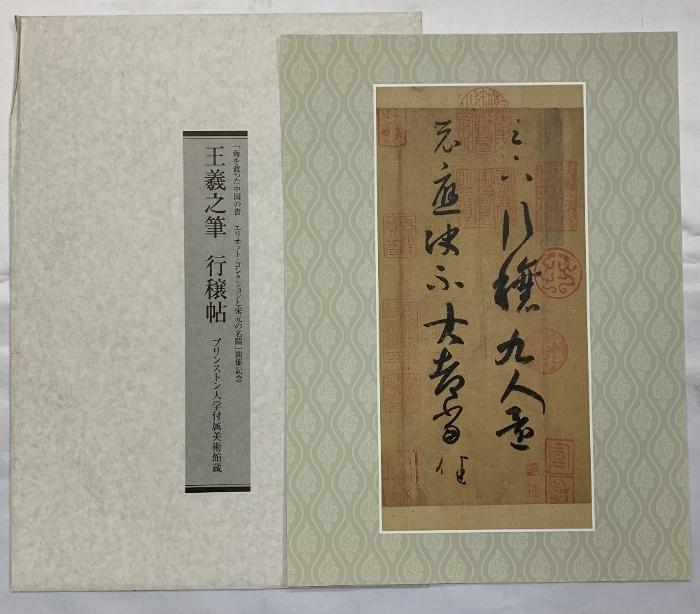 「海を渡った中国の書　エリオット・コレクションと宋元の名蹟」開催記念
王羲之筆　行穣帖　プリンストン大学付属美術館蔵
足下行穰九人還
示應決不大都當佳